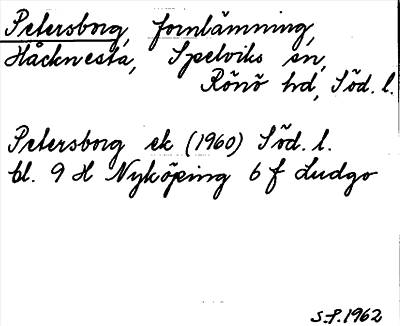 Petersborg, fornlämning,
Håcknesta, Spelviks sn,
Rönö hd, Söd. l.
Petersborg ek (1960) Söd. l.
bl. 9 H Nyköping 6 f Ludgo
S.P. 1962